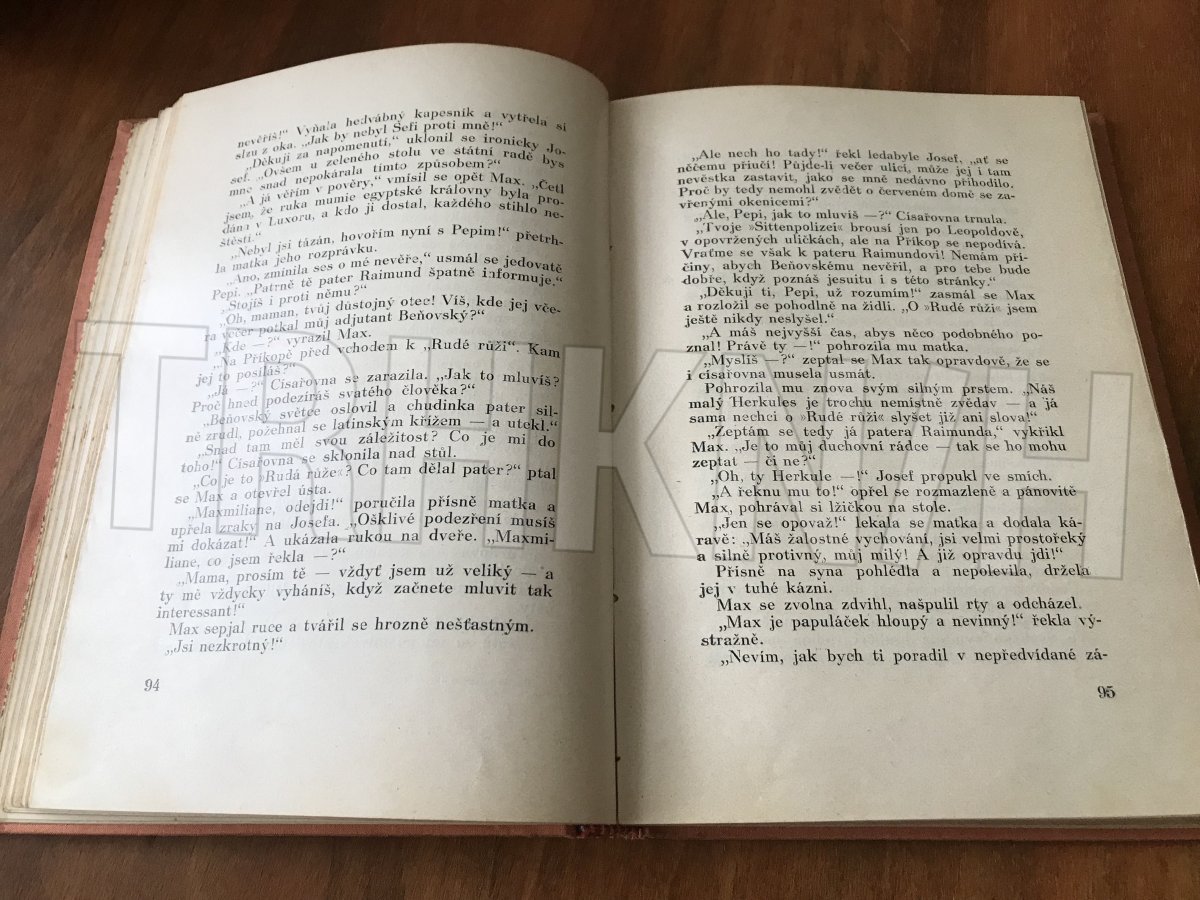 nevěříš!“ Vyňala hedvábný kapesník a vytřela si
slzu z oka. „Jak by nebyl Šefi proti mně!“
„Děkuji za napomenutí,“ uklonil se ironicky Jo-
sef. „Ovšem u zeleného stolu ve státní radě bys
mne snad nepokárala tímto způsobem?“
„A já věřím v pověry,“ vmísil se opět Max. „Četl
jsem, že ruka mumie egyptské královny byla pro-
dána v Luxoru, a kdo ji dostal, každého stihlo ne-
štěstí.“
„Nebyl jsi tázán, hovořím nyní s Pepim!“ přetrh-
la matka jeho rozprávku.
„Ano, zmínila ses o mé nevěře,“ usmál se jedovatě
Pepi. „Patrně tě páter Raimund špatně informuje.“
„Stojíš i proti němu?“
„Oh, maman, tvůj důstojný otec! Víš, kde jej vče-
ra večer potkal můj adjutant Beňovský?“
„Kde —?“ vyrazil Max.
„Na Příkopě před vchodem k „Rudé růži“. Kam
jej to posíláš?“
„Já —?“ Císařovna se zarazila. „Jak to mluvíš?
Proč hned podezíráš svatého člověka?“
„Beňovský světce oslovil a chudinka pater sil-
ně zrudl, požehnal se latinským křížem — a utekl.“
„Snad tam měl svou záležitost? Co je mi do
toho!“ Císařovna se sklonila nad stůl.
„Co je to »Rudá růže«? Co tam dělal páter?“ ptal
se Max a otevřel ústa.
„Maxmiliane, odejdi!“ poručila přísně matka a
upřela zraky na Josefa. „Ošklivé podezření musíš
mi dokázat!“ A ukázala rukou na dveře. „Maxmi-
liane, co jsem řekla —?“
„Mama, prosím tě — vždyť jsem už veliký — a
ty mě vždycky vyháníš, když začnete mluvit tak
interessant!“
Max sepjal ruce a tvářil se hrozně nešťastným.
„Jsi nezkrotný!“
94
„Ale nech ho tady!“ řekl ledabyle Josef, „ať se
něčemu přiučí! Půjde-li večer ulicí, může jej i tam
nevěstka zastavit, jako se mně nedávno přihodilo.
Proč by tedy nemohl zvědět o červeném domě se za-
vřenými okenicemi?“
„Ale, Pepi, jak to mluvíš —?“ Císařovna trnula.
„Tvoje »Sittenpolizei« brousí jen po Leopoldově,
v opovržených uličkách, ale na Příkop se nepodívá.
Vraťme se však k pateru Raimundovi! Nemám pří-
činy, abych Beňovskému nevěřil, a pro tebe bude
dobře, když poznáš jesuitu i s této stránky.“
„Děkuji ti, Pepi, už rozumím!“ zasmál se Max
a rozložil se pohodlně na židli. „O »Rudé růži« jsem
ještě nikdy neslyšel.“
„A máš nejvyšší čas, abys něco podobného po-
znal! Právě ty —!“ pohrozila mu matka.
„Myslíš —?“ zeptal se Max tak opravdově, že se
i císařovna musela usmát.
Pohrozila mu znova svým silným prstem. „Náš
malý Herkules je trochu nemístně zvědav — a já
sama nechci o »Rudé růži« slyšet již ani slova!“
„Zeptám se tedy já patera Raimunda,“ vykřikl
Max. „Je to můj duchovní rádce — tak se ho mohu
zeptat — či ne?“
„Oh, ty Herkule —!“ Josef propukl ve smích.
„A řeknu mu to!“ opřel se rozmazleně a pánovitě
Max, pohrával si lžičkou na stole.
„Jen se opovaž!“ lekala se matka a dodala ká-
ravě: „Máš žalostné vychování, jsi velmi prostořeký
a silně protivný, můj milý! A již opravdu jdi!“
Přísně na syna pohlédla a nepolevila, držela
jej v tuhé kázni.
Max se zvolna zdvihl, našpulil rty a odcházel.
„Max je papuláček hloupý a nevinný!“ řekla vý-
stražně.
„Nevím, jak bych ti poradil v nepředvídané zá-
95